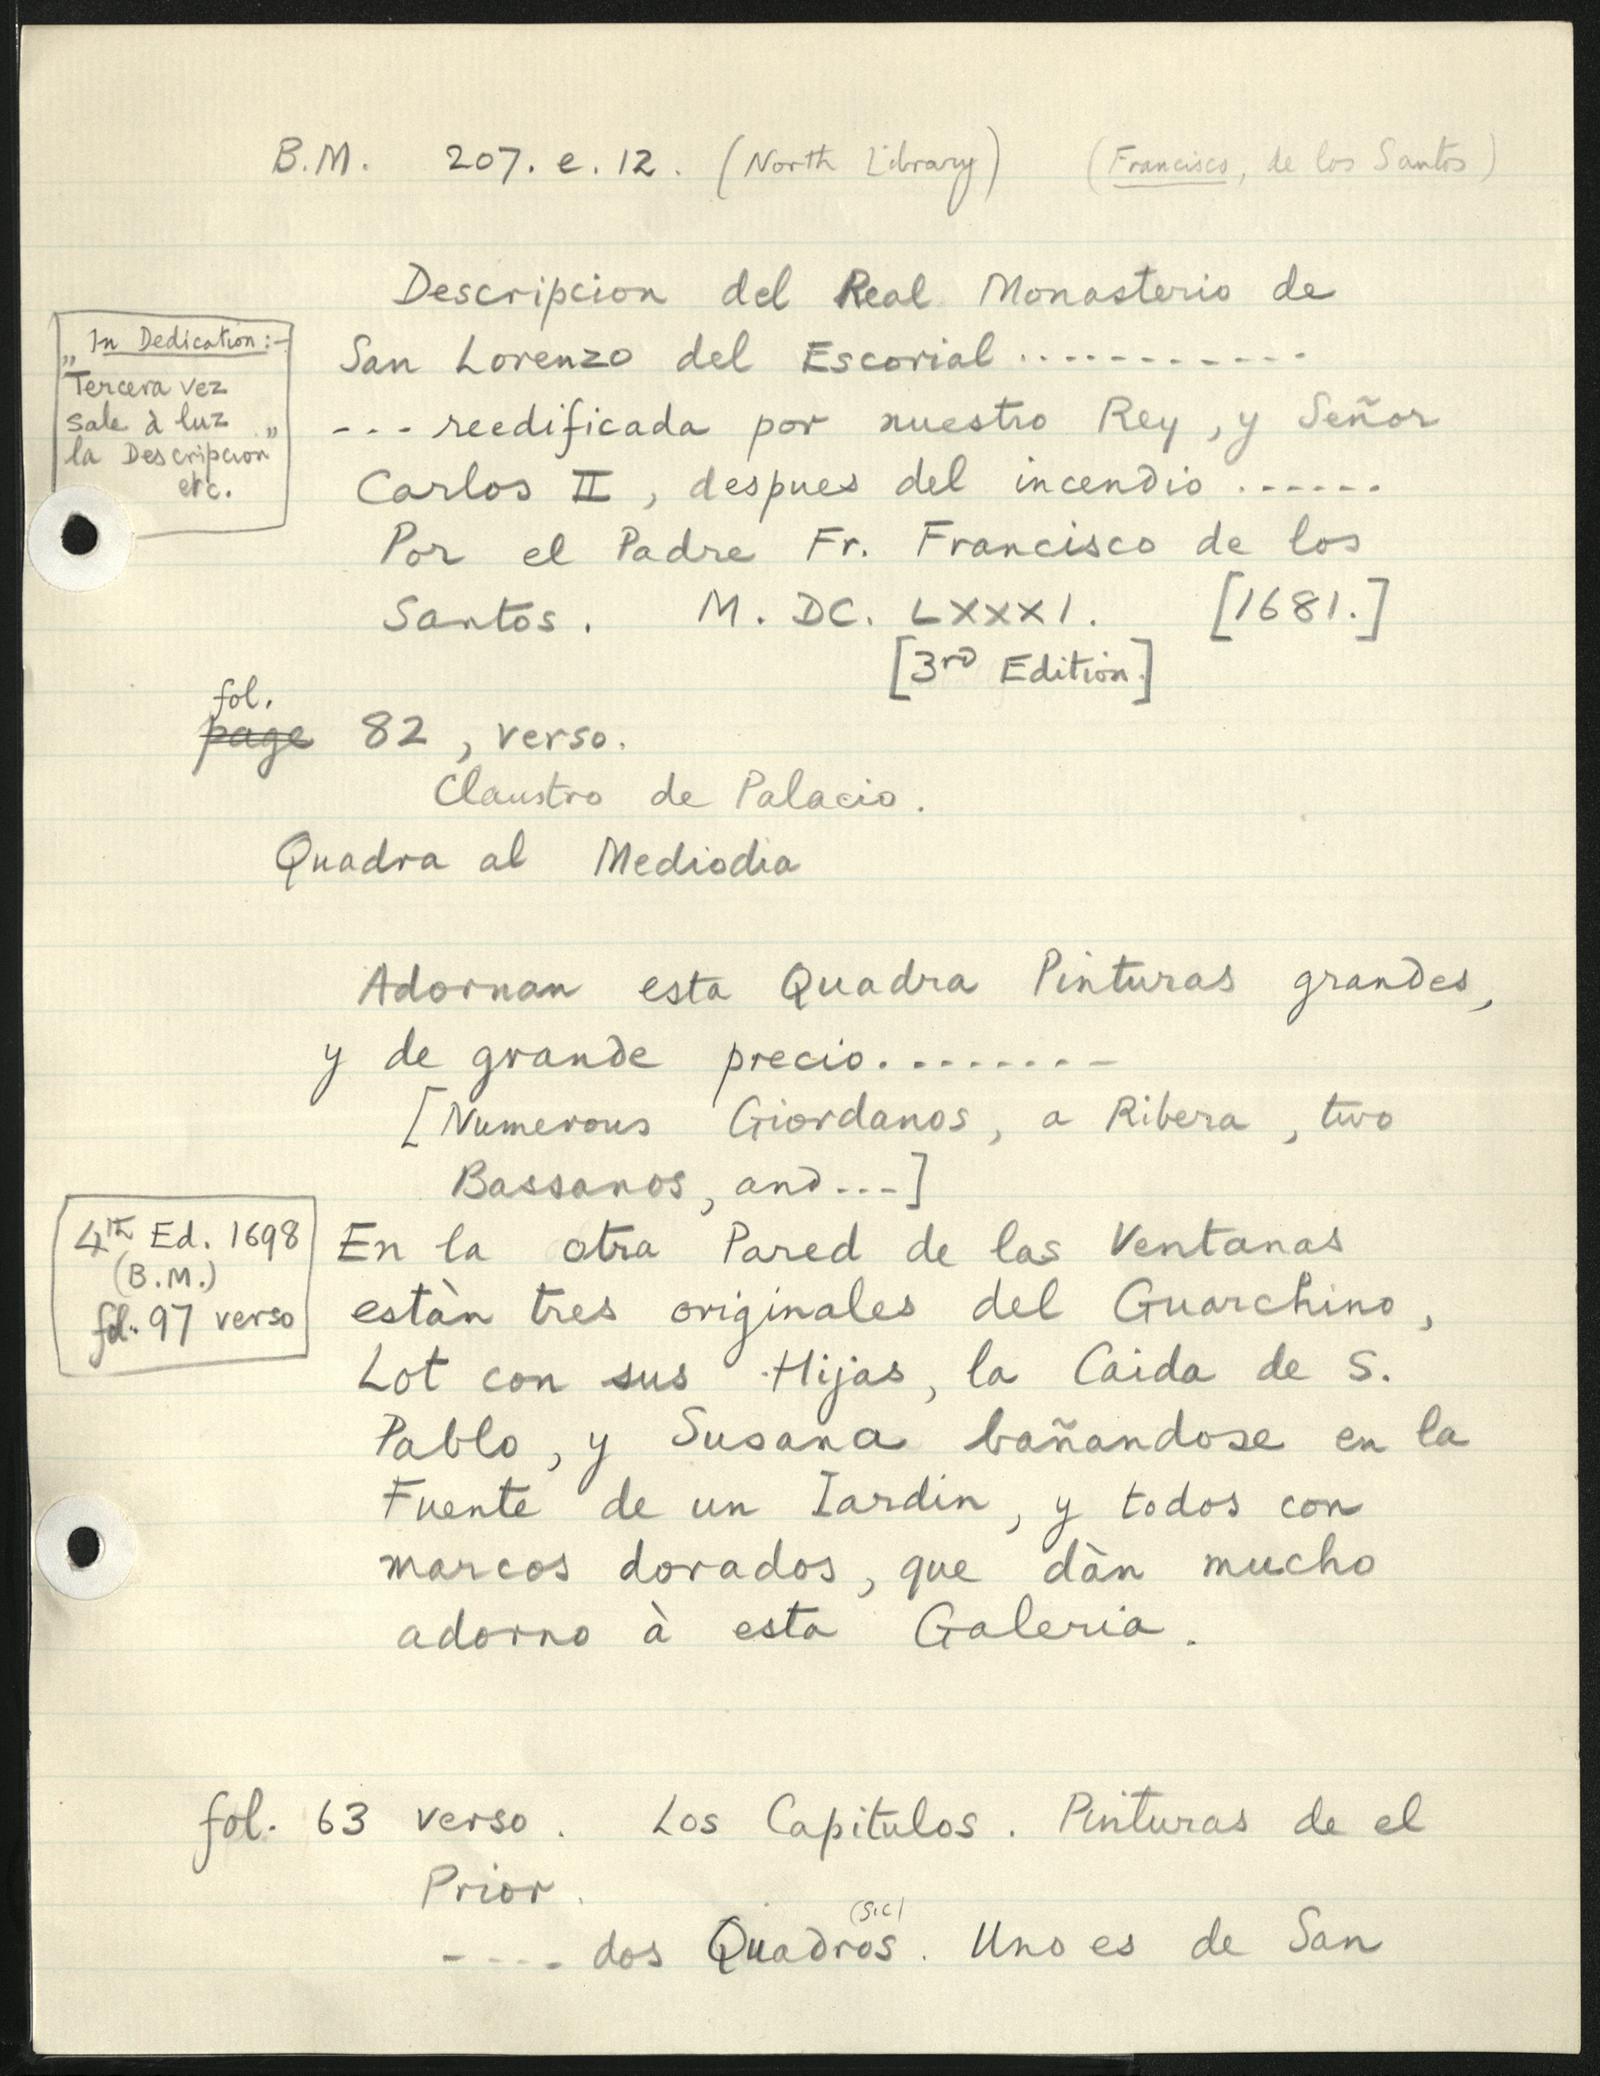 B.M. 207. e. 12. (North Library) (Francisco, de los Santos)
Descripcion del Real Monasterio de
San Lorenzo del Escorial ............
--- reedificada por nuestro Rey, y Señor
Carlos II, despues del incendio ......
Por el Padre Fr. Francisco de los
Santos. M. DC. LXXXI. [1681.]
[3rd Edition.]
In Dedication:-
„Tercera vez
sale à luz
la Descripcion”
etc.
fol.
page 82, verso.
Claustro de Palacio.
Quadra al Mediodia
Adornan esta Quadra Pinturas grandes,
y de grande precio........
[Numerous Giordanos, a Ribera, two
Bassanos, and ---]
4th Ed. 1698
(B.M.)
fol. 97 verso
En la otra Pared de las Ventanas
estàn tres originales del Guarchino,
Lot con sus Hijas, la Caida de S.
Pablo, y Susana bañandose en la
Fuente de un Iardin, y todos con
marcos dorados, que dàn mucho
adorno à esta Galeria.
fol. 63 verso. Los Capitulos. Pinturas de el
Prior.
(sic)
---- dos Quadros. Uno es de San